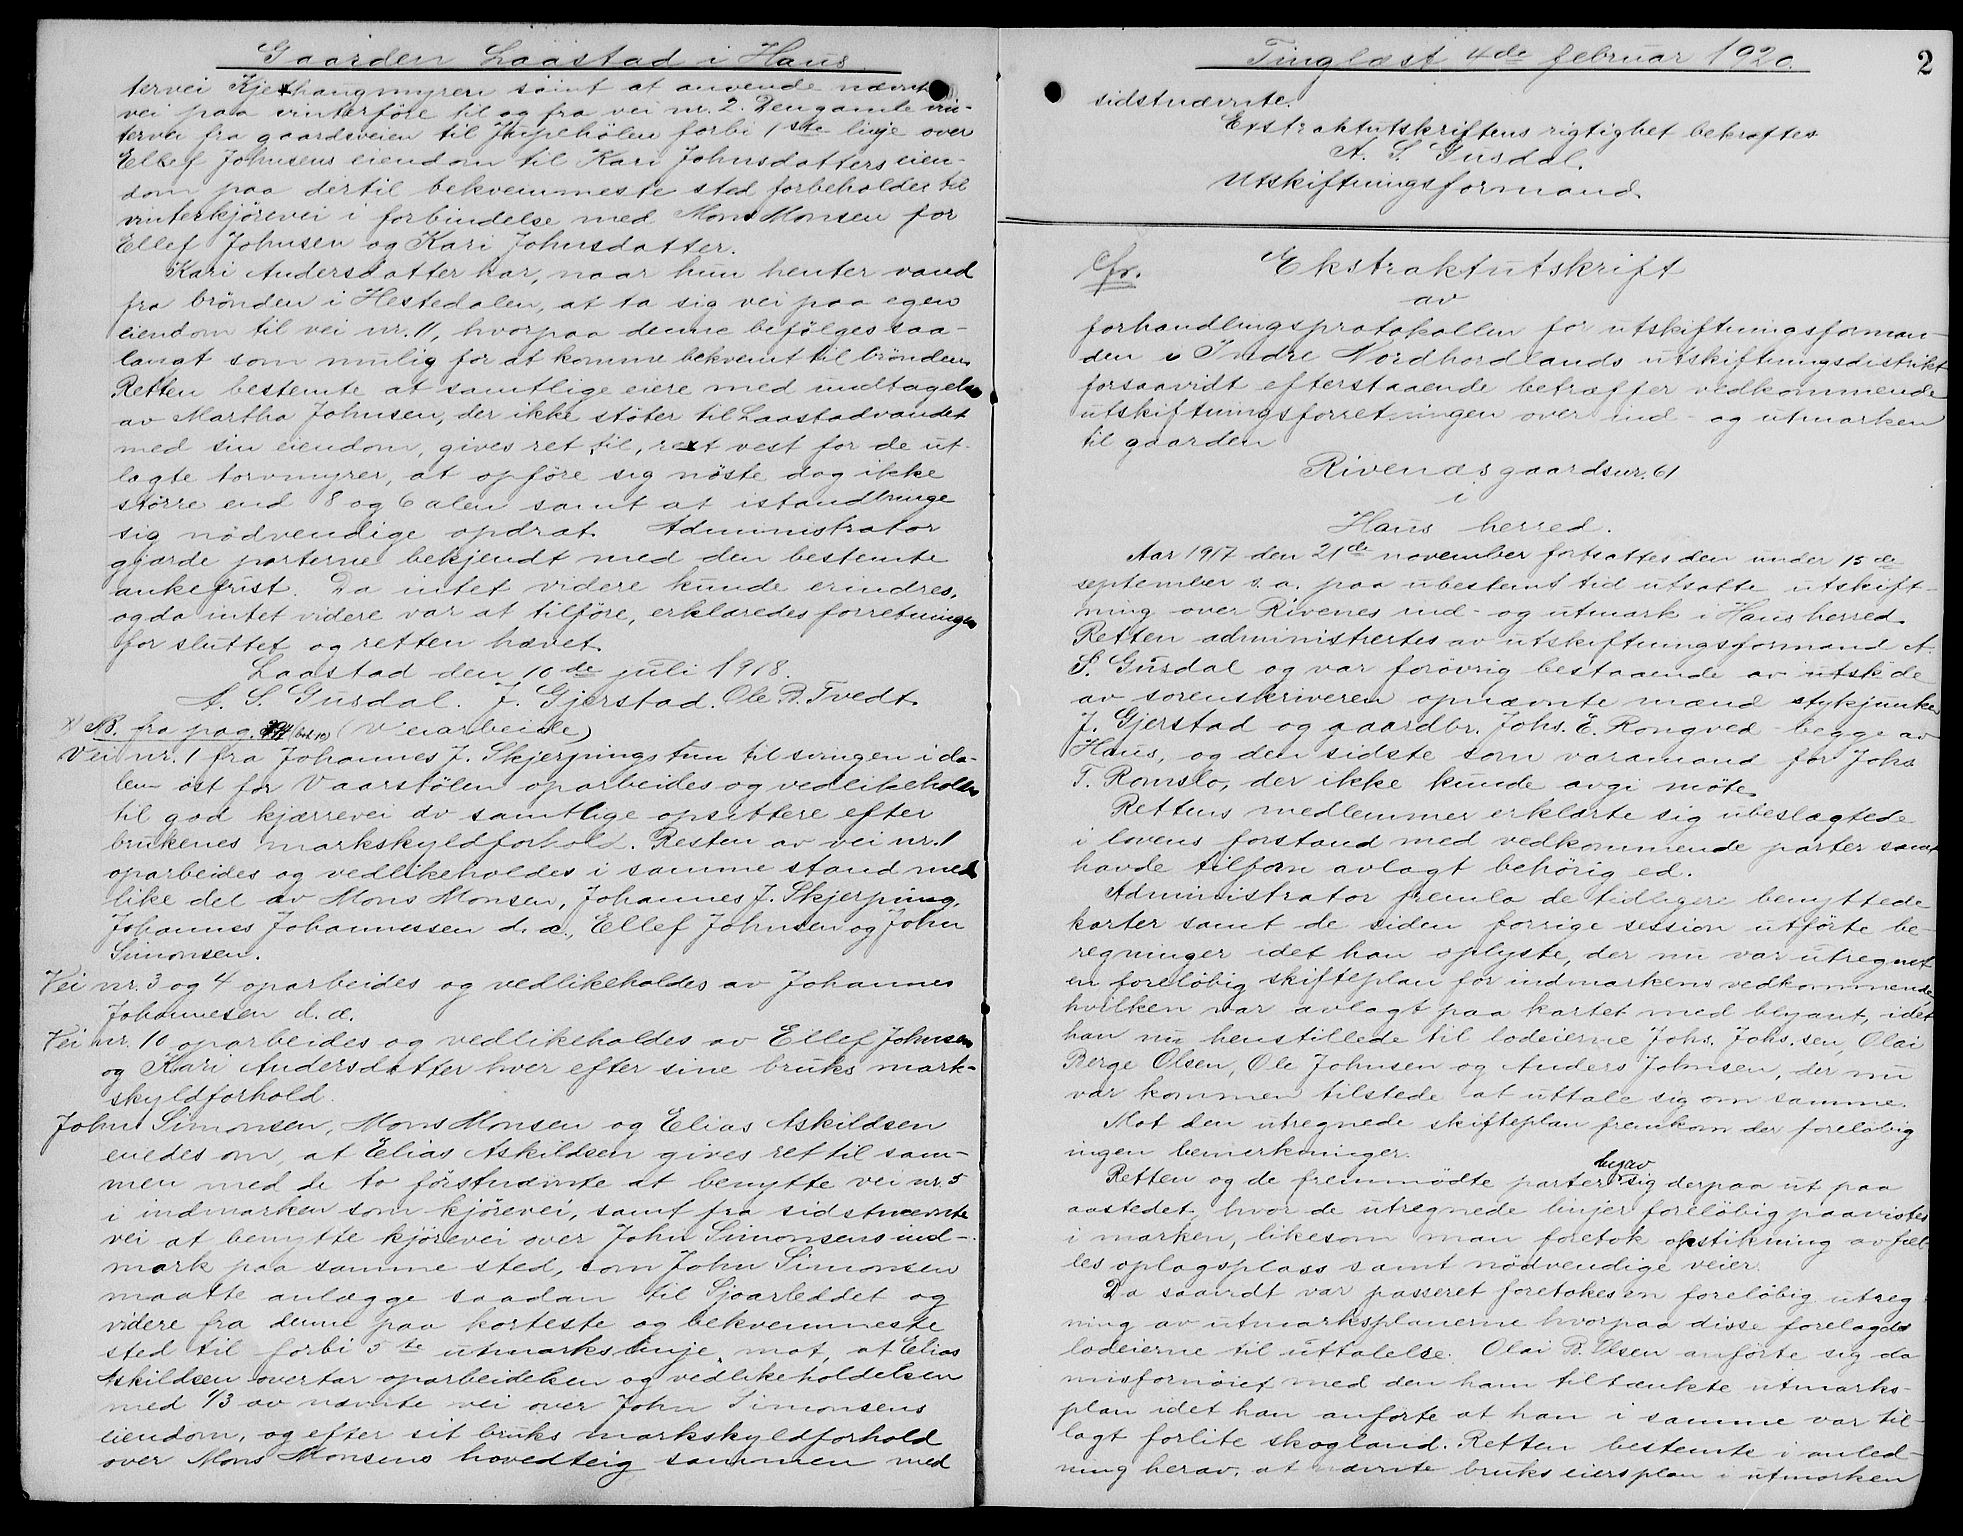 Gaarden Laastad i Haus
tervei Kjethangmyren samt at anvende nævnte
vei paa vinterföre til og fra vei nr. 2. Den gamle vin-
tervei fra gaardsveien til Jupehölen forbi 1ste linje over
Ellef Johnsens eiendom til Kari Johnsdatters eien-
dom paa dertil bekvemmeste sted forbeholdes til
vinterkjörevei i forbindelse med Mons Monsen for
Ellef Johnsen og Kari Johnsdatter.
Kari Andersdatter har, naar hun henter vand
fra brönden i Hestedalen, at ta sig vei paa egen
eiendom til vei nr. 11, hvorpaa denne befölges saa-
langt som mulig for at komme bekvemt til brönden.
Retten bestemte at samtlige eiere med undtagelse
av Martha Johnsen, der ikke stöter til Laastadvandet
med sin eiendom, gives ret til, ret vest for de ut-
lagte torvmyrer, at opföre sig nöste dog ikke
större end 8 og 6 alen samt at istandbringe
sig nödvendige opdrat. Administrator
gjorde parterne bekjendt med den bestemte
ankefrist. Da intet videre kunde erindres,
og da intet videre var at tilföre, erklæredes forretningen
for sluttet og retten hævet.
Laastad den 10de juli 1918.
A. S. Gusdal. J. Gjerstad. Ole B. Tvedt.
x) NB. fra pag. (Veiarbeide)
Vei nr. 1 fra Johannes J. Skjerpings tun til svingen i da-
len öst for Vaarstölen oparbeides og vedlikeholdes
til god kjærrevei av samtlige opsittere efter
brukenes markskyldforhold. Resten av vei nr. 1
oparbeides og vedlikeholdes i samme stand med
like del av Mons Monsen, Johannes J. Skjerping,
Johannes Johannessen d. æ., Ellef Johnsen og John
Simonsen.
Vei nr. 3 og 4 oparbeides og vedlikeholdes av Johannes
Johannesen d. æ.
Vei nr. 10 oparbeides og vedlikeholdes av Ellef Johnsen
og Kari Andersdatter hver efter sine bruks mark-
skyldforhold.
John Simonsen, Mons Monsen og Elias Askildsen
enedes om, at Elias Askildsen gives ret til sam-
men med de to förstnævnte at benytte vei nr. 5
i indmarken som kjörevei, samt fra sidstnævnte
vei at benytte kjörevei over John Simonsens ind-
mark paa samme sted, som John Simonsen
maatte anlægge saadan til Sjoarleddet og
videre fra denne paa korteste og bekvemmeste
sted til forbi 5te utmarkslinje, mot, at Elias
Askildsen overtar oparbeidelsen og vedlikeholdelsen
med 1/3 av nævnte vei over John Simonsens
eiendom, og efter sit bruks markskyldforhold
over Mons Monsens hovedteig sammen med
Tinglæst 4de februar 1920.
2
sidstnævnte.
Exstraktutskriftens rigtighet bekræftes
A. S. Gusdal.
Utskiftningsformand.
Cfr.
Ekstraktutskrift
av
forhandlingsprotokollen for utskiftningsforman-
den i Indre Nordhordlands utskiftningsdistrikt
forsaavidt efterstaaende betræffer vedkommende
utskiftningsforretningen over ind- og utmarken
til gaarden
Rivenæs gaardsnr. 61
i
Haus herred.
Aar 1917 den 21de november fortsattes den under 15de
september s. a. paa ubestemt tid utsatte utskift-
ning over Rivenes ind- og utmark i Haus herred.
Retten administrertes av utskiftningsformand A.
S. Gusdal og var forövrig bestaaende av utsk de
av sorenskriveren opnævnte mænd stykjunker
J. Gjerstad og gaardbr. Johs. E. Rongved begge av
Haus, og den sidste som varamand for Johs
T. Romslo, der ikke kunde avgi möte.
Rettens medlemmer erklærte sig ubeslægtede
i lovens forstand med vedkommende parter samt
havde tilforn avlagt behörig ed.
Administrator fremla de tidligere benyttede
karter samt de siden forrige session utförte be-
regninger idet han oplyste, der nu var utregnet
en forelöbig skifteplan for indmarkens vedkommende,
hvilken var avlagt paa kartet med blyant, idet
han nu henstillede til lodeierne Johs. Johs.sen, Olai
Berge Olsen, Ole Johnsen og Anders Johnsen, der nu
var kommen tilstede at uttale sig om samme.
Mot den utregnede skifteplan fremkom der forelöbig
ingen bemerkninger.
Retten og de fremmödte parter begav sig derpaa ut paa
aastedet, hvor de utregnede linjer forelöbig paavistes
i marken, likesom man foretok opstikning av fæl-
les oplagsplass samt nödvendige veier.
Da saavidt var passeret foretokes en forelöbig utreg-
ning av utmarksplanerne hvorpaa disse forelagdes
lodeierne til uttalelse. Olai B. Olsen anförte sig da
misfornöiet med den ham tiltænkte utmarks-
plan idet han anförte at han i samme var til-
lagt forlite skogland. Retten bestemte i anled-
ning herav, at nævnte bruks eiers plan i utmarken